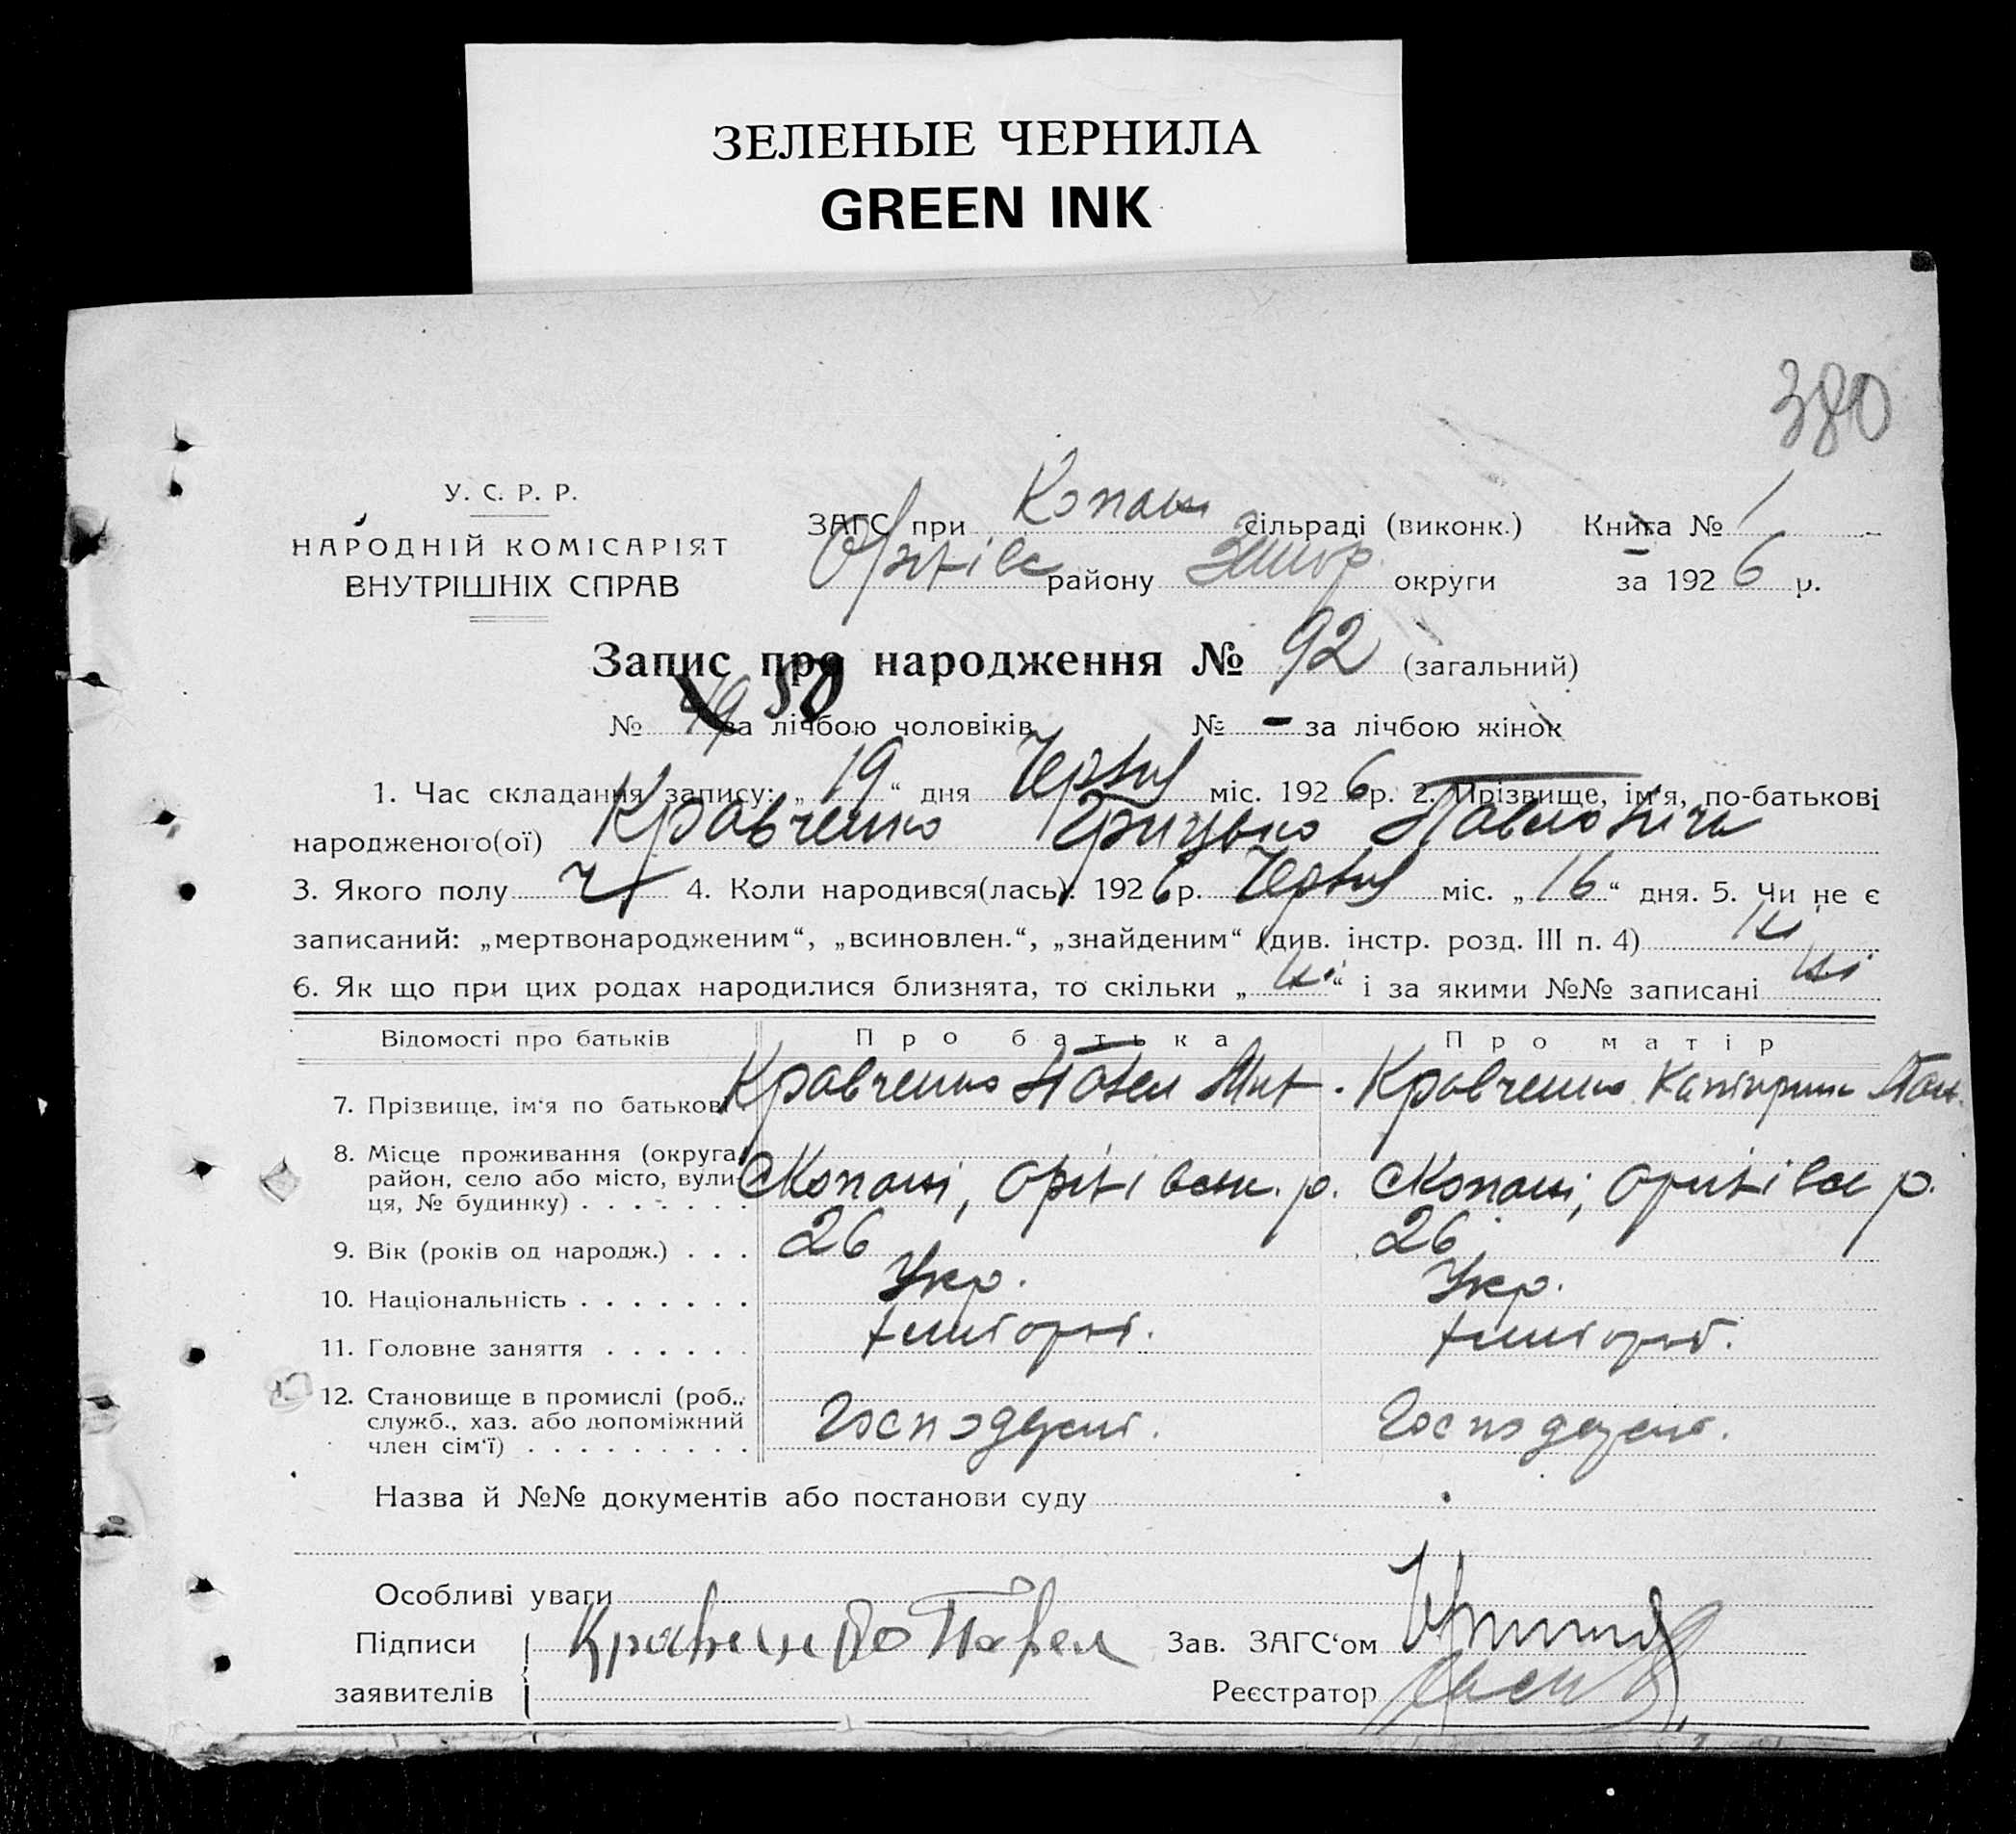 ЗЕЛЕНЫЕ ЧЕРНИЛА
GREEN INK
380
У. С. Р. Р.
НАРОДНІЙ КОМІСАРІЯТ
ВНУТРІШНІХ СПРАВ
ЗАГС при Копані сільраді (виконк.) Книга № 1
Оріхівс району Запор. округи за 1926 р.
Запис про народження № 92 (загальний)
№ 49 50 за лічбою чоловіків № - за лічбою жінок
1. Час складання запису: „19“ дня Червня міс. 1926 р. 2. Прізвище, ім'я, по-батькові
народженого(ої) Кравченко Грицько Павлович
3. Якого полу ч 4. Коли народився(лась): 1926 р. Червня міс. „16“ дня. 5. Чи не є
записаний: „мертвонародженим“, „всиновлен.“, „знайденим“ (див. інстр. розд. III п. 4) ні
6. Як що при цих родах народилися близнята, то скільки „ні“ і за якими №№ записані ні
Відомості про батьків Про батька Про матір
7. Прізвище, ім'я по батькові Кравченко Павел Мит. Кравченко Катирина
8. Місце проживання (округа, район, село або місто, вулиця, № будинку) . . . . . . . сКопані, Оріхівськ. р. сКопані, Оріхівсь р.
9. Вік (років од народж.) . . . 26 26
10. Національність . . . . . . . Укр. Укр.
11. Головне заняття . . . . . . хлібороб. хлібороб.
12. Становище в промислі (роб., служб., хаз. або допоміжний член сім'ї) . . . . . . . . .
Назва й №№ документів або постанови суду
Особливі уваги
Підписи Кравченко Павел Зав. ЗАГС'ом
заявителів Реєстратор